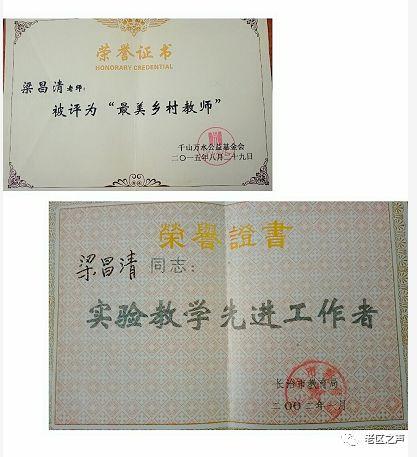 荣誉证书
HONORARY CREDENTIAL
梁昌清老师：
被评为“最美乡村教师”
千山万水公益基金会
二〇一五年八月二十九日
榮譽證書
梁昌清同志：
实验教学先进工作者
长治市教育局
二〇〇二年一月
老区之声